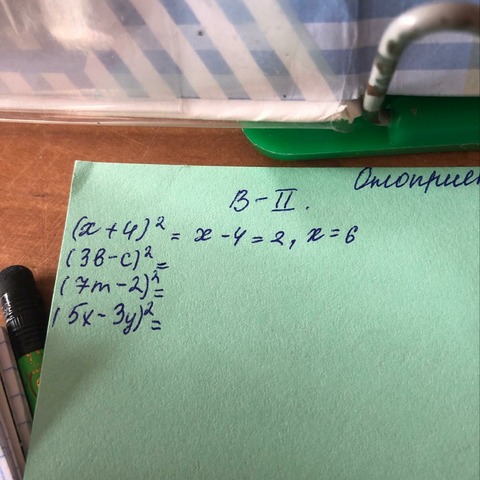 В-II.
(x+4)² = x-4=2, x=6
(3в-с)²=
(7m-2)²=
(5x-3y)²=